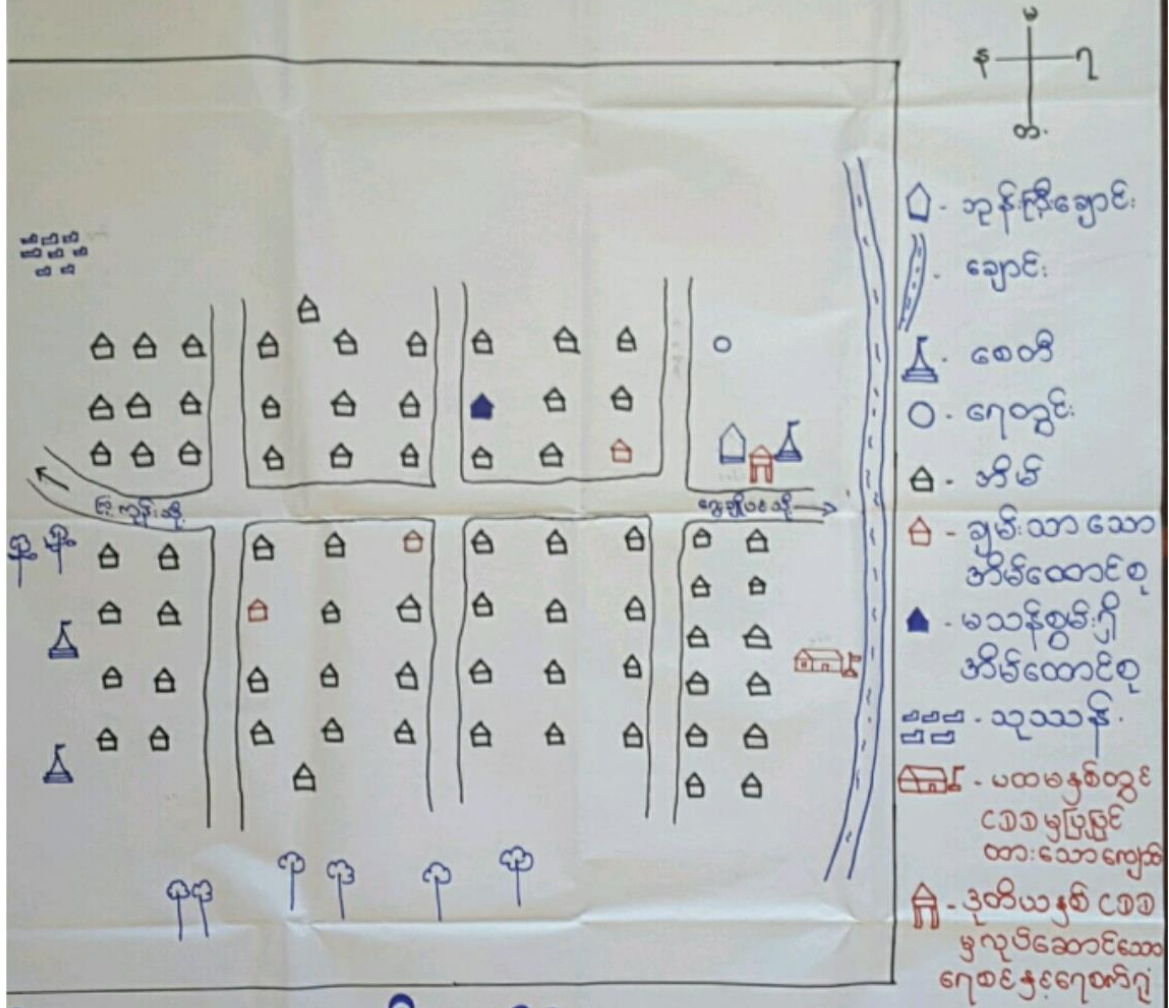 မ
န
တ
ဘုန်းကြီးချောင်း
ချောင်း
စေတီ
ရေတွင်း
အိမ်
ချမ်းသာသော
အိမ်ထောင်စု
မသန်စွမ်းရှိ
အိမ်ထောင်စု
သုဿန်
ပထမနှစ်တွင်
CDD မှပြုပြင်
ထားသောကျောင်း
ဒုတိယနှစ် CDD
မှလုပ်ဆောင်သော
ရေစင်နှင့်ရေစက်ရုံ